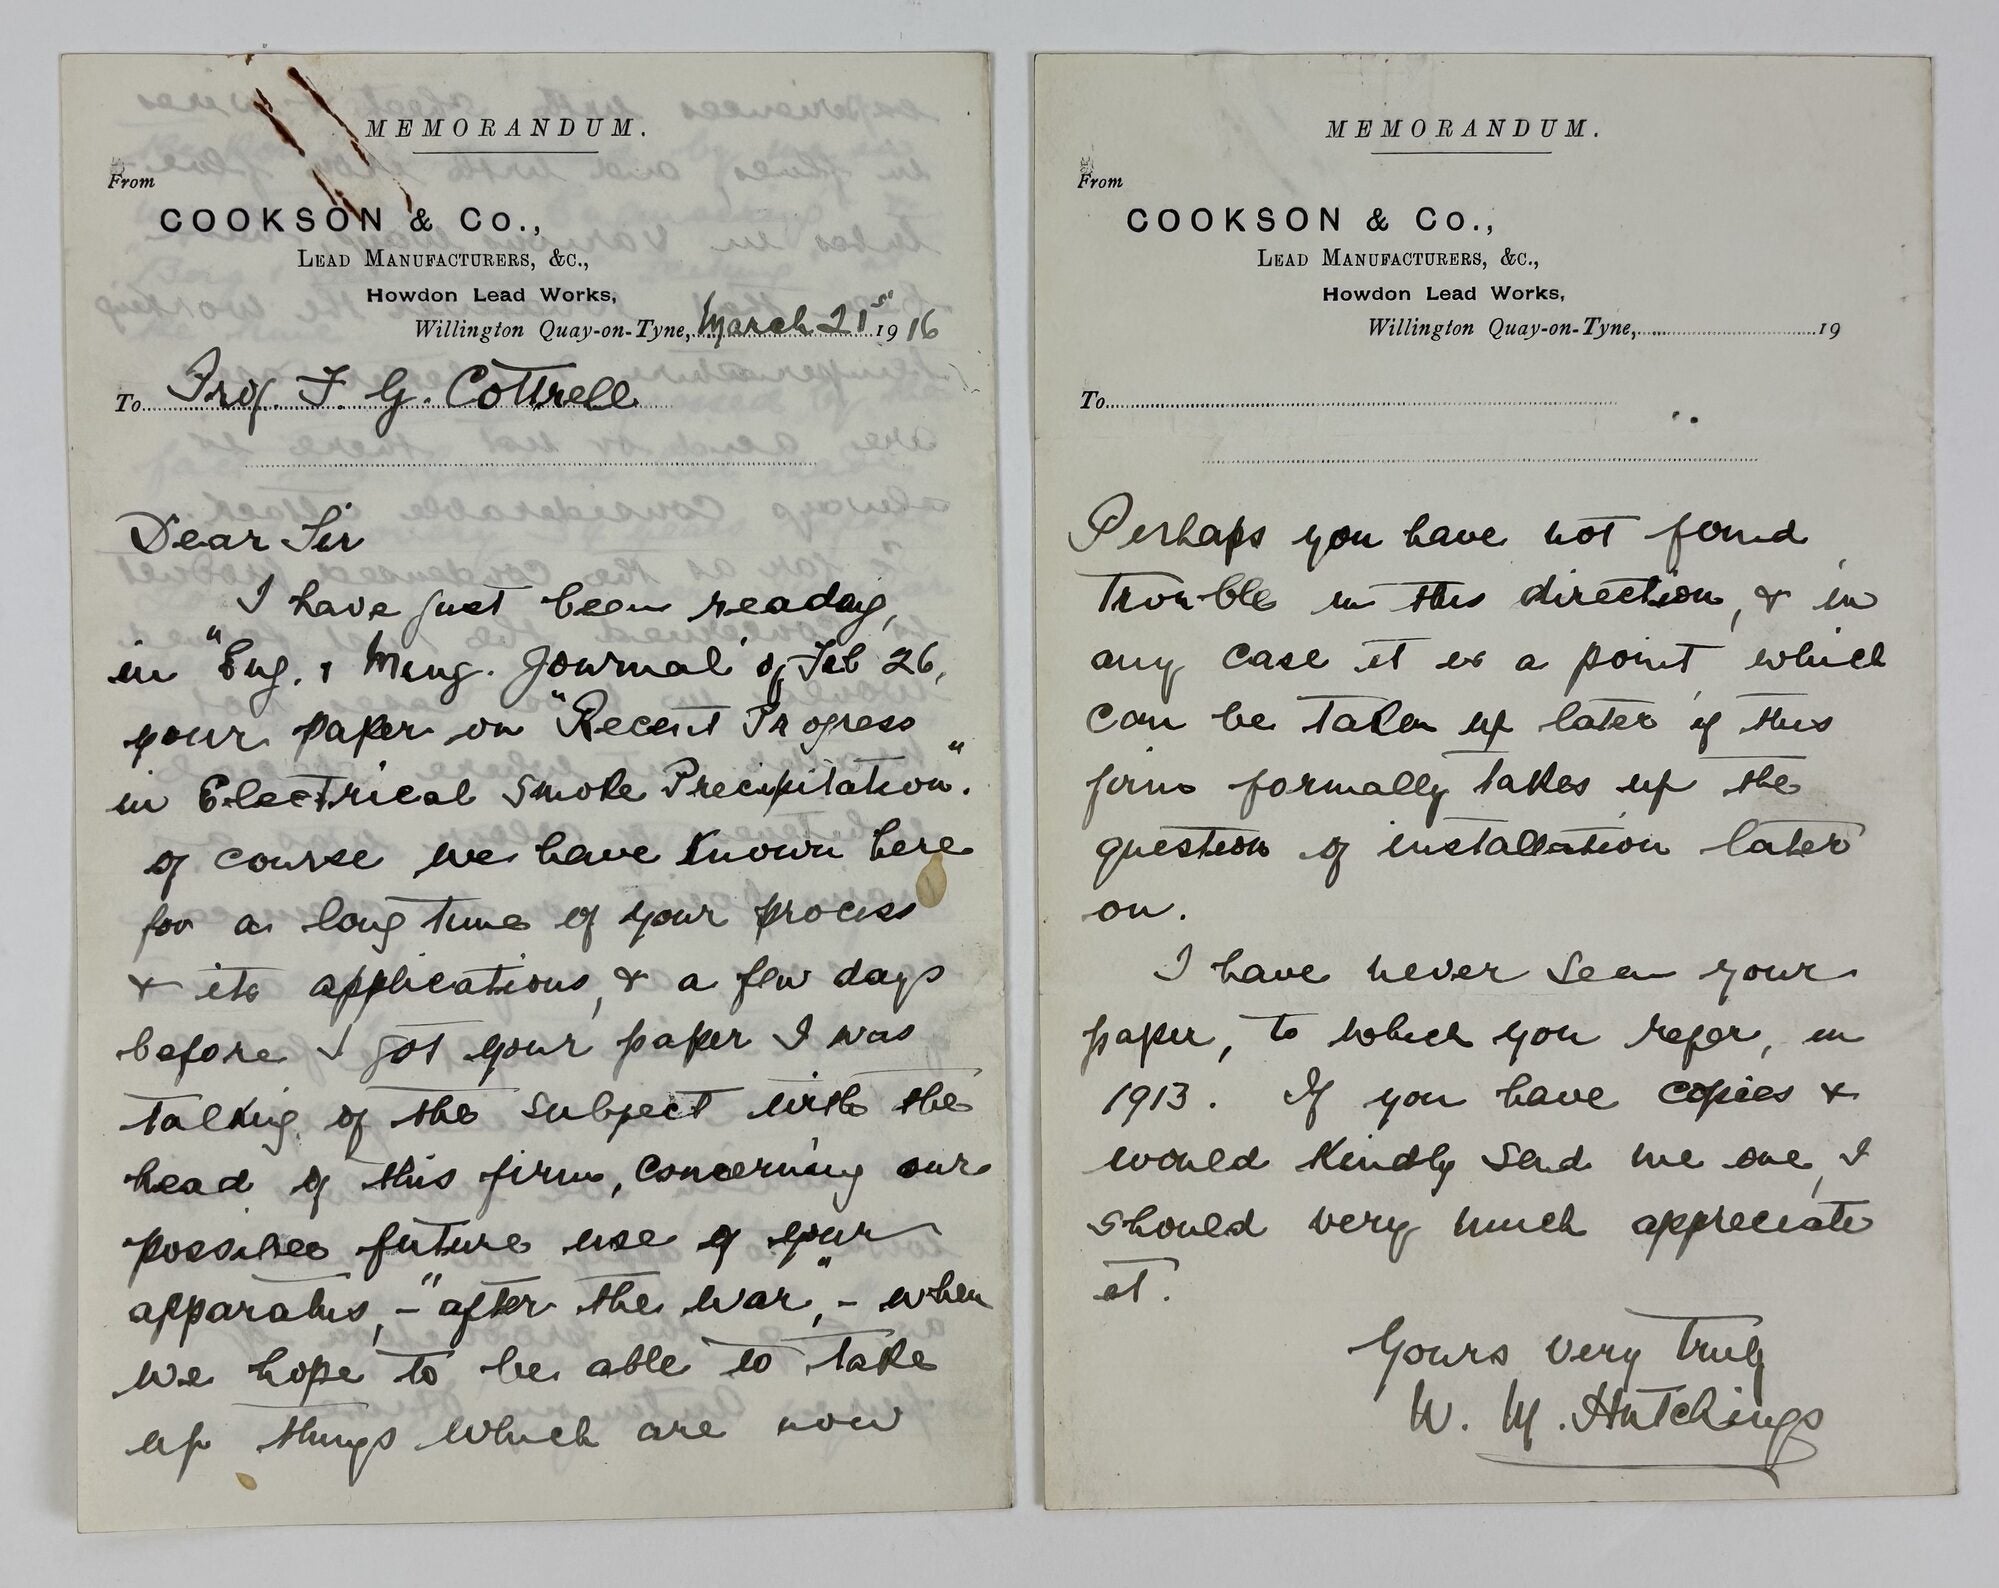 MEMORANDUM.
From
COOKSON & Co.,
LEAD MANUFACTURERS, &c.,
Howdon Lead Works,
Willington Quay-on-Tyne, March 21st 1916
To Prof. F. G. Cottrell
Dear Sir
I have just been reading,
in "Eng. & Mng. Journal" of Feb 26,
your paper on "Recent Progress
in Electrical Smoke Precipitation".
Of course we have known here
for a long time of your process
& its applications, & a few days
before I got your paper I was
talking of the subject with the
head of this firm, concerning our
possible future use of your
apparatus, - "after the war", - when
we hope to be able to take
up things which are now
MEMORANDUM.
From
COOKSON & Co.,
LEAD MANUFACTURERS, &c.,
Howdon Lead Works,
Willington Quay-on-Tyne, 19
To
Perhaps you have not found
trouble in this direction, & in
any case it is a point which
can be taken up later if this
firm formally takes up the
question of installation later
on.
I have never seen your
paper, to which you refer, in
1913. If you have copies &
would kindly send me one, I
should very much appreciate
it.
Yours very truly
W. M. Hutchings